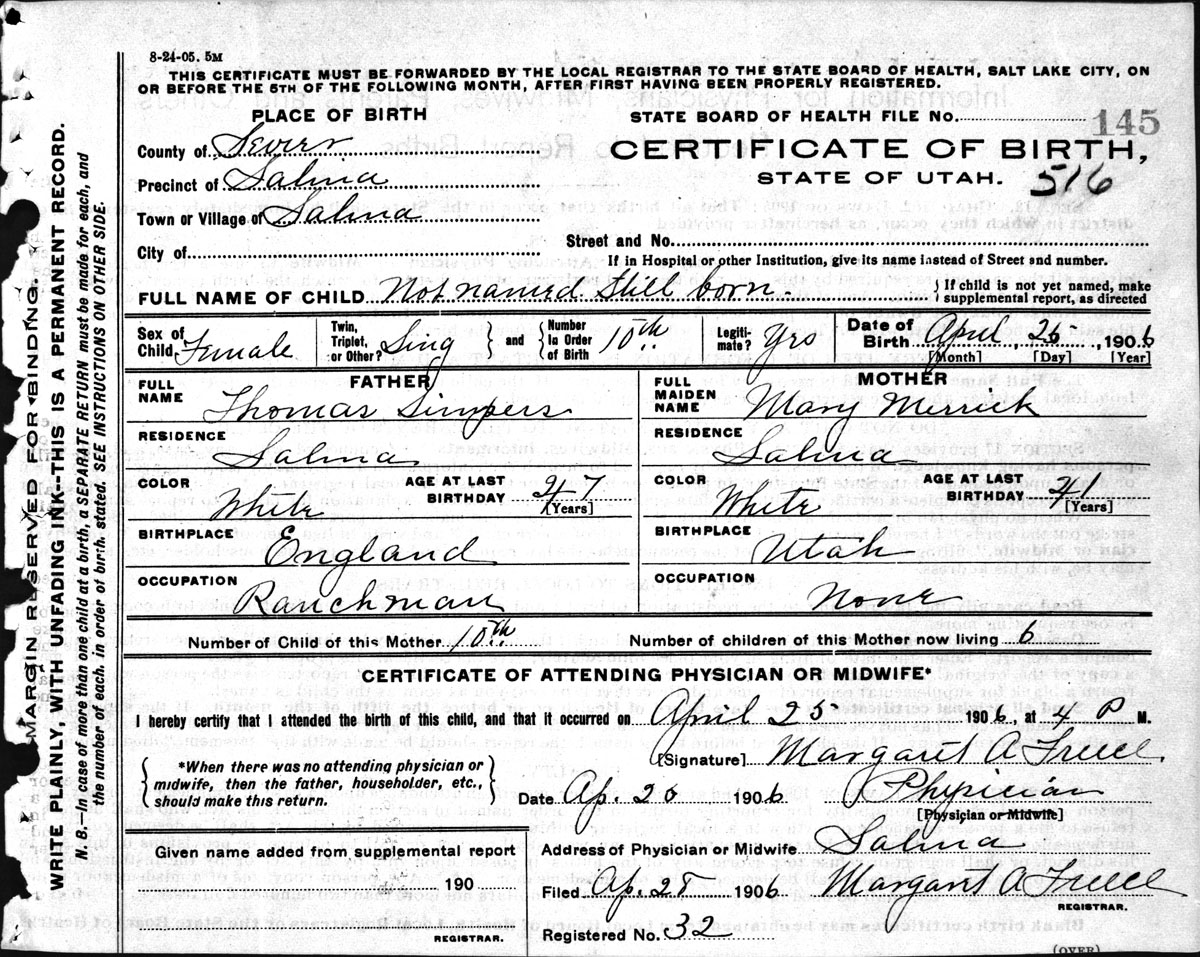 8-24-05. 5M
THIS CERTIFICATE MUST BE FORWARDED BY THE LOCAL REGISTRAR TO THE STATE BOARD OF HEALTH, SALT LAKE CITY, ON
OR BEFORE THE 5TH OF THE FOLLOWING MONTH, AFTER FIRST HAVING BEEN PROPERLY REGISTERED.
PLACE OF BIRTH
STATE BOARD OF HEALTH FILE No. 145
County of Sevier
CERTIFICATE OF BIRTH,
STATE OF UTAH. 516
Precinct of Salina
Town or Village of Salina
City of
Street and No.
If in Hospital or other Institution, give its name instead of Street and number.
FULL NAME OF CHILD Not named. Still born.
If child is not yet named, make
supplemental report, as directed
Sex of Child Female
Twin, Triplet, or Other? Sing and Number In Order of Birth 10th
Legitimate? Yrs
Date of Birth April, 25, 1906
[Month] [Day] [Year]
FATHER
FULL NAME Thomas Simpers
RESIDENCE Salina
COLOR White AGE AT LAST BIRTHDAY 47 [Years]
BIRTHPLACE England
OCCUPATION Ranchman
MOTHER
FULL MAIDEN NAME Mary Merrick
RESIDENCE Salina
COLOR White AGE AT LAST BIRTHDAY 41 [Years]
BIRTHPLACE Utah
OCCUPATION None
Number of Child of this Mother 10th Number of children of this Mother now living 6
CERTIFICATE OF ATTENDING PHYSICIAN OR MIDWIFE*
I hereby certify that I attended the birth of this child, and that it occurred on April 25 1906, at 4 P M.
*When there was no attending physician or
midwife, then the father, householder, etc.,
should make this return.
[Signature] Margaret A
Date Ap. 1906 Physician
[Physician or Midwife]
Given name added from supplemental report
190
REGISTRAR.
Address of Physician or Midwife Salina
Filed Ap. 28 1906 Margaret A
REGISTRAR.
Registered No. 32
(OVER)
MARGIN RESERVED FOR BINDING.
WRITE PLAINLY, WITH UNFADING INK--THIS IS A PERMANENT RECORD.
N. B.—In case of more than one child at a birth, a SEPARATE RETURN must be made for each, and
the number of each, in order of birth, stated. SEE INSTRUCTIONS ON OTHER SIDE.